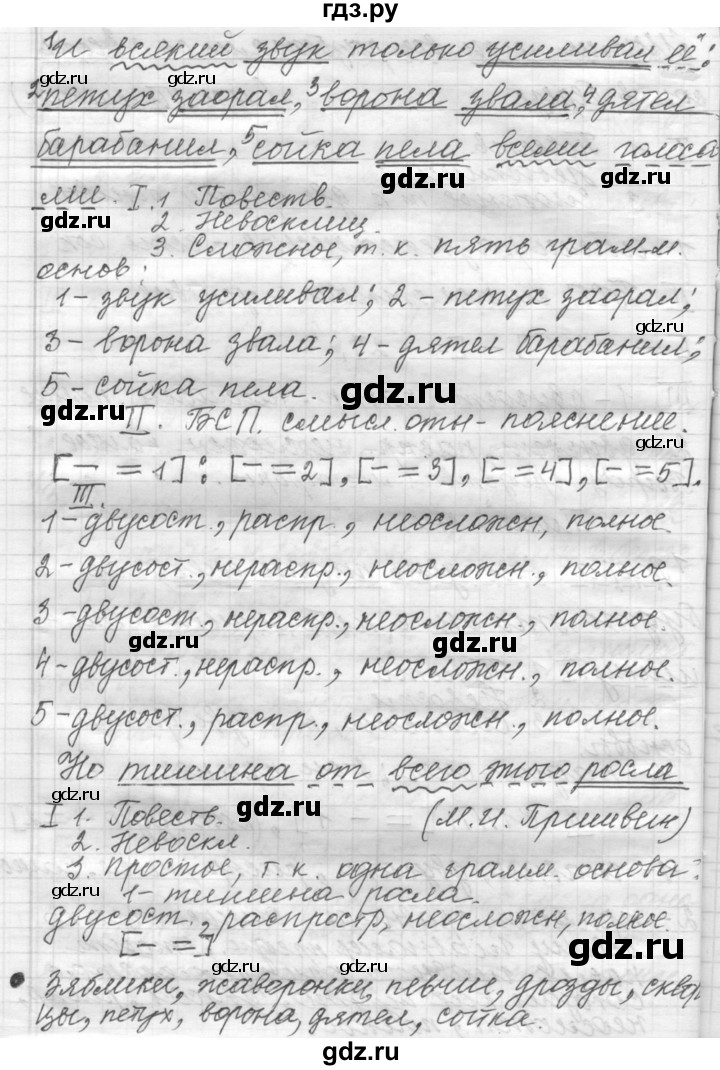 гдз.ру
1И всякий звук только усиливал её:
2петух заорал, 3ворона звала, 4дятел
барабанил, 5сойка пела всеми голоса
ми. I. 1 Повеств.
2. Невосклиц.
3. Сложное, т.к. пять грам-м.
основ:
1 - звук усиливал; 2 - петух заорал;
3 - ворона звала; 4 - дятел барабанил;
5 - сойка пела.
II. БСП. смысл. отн - пояснение.
[— = 1]: [— = 2], [— = 3], [— = 4], [— = 5].
III.
1 - двусост., распр., неосложн, полное.
2 - двусост., нераспр., неосложн., полное.
3 - двусост., нераспр., неосложн., полное.
4 - двусост., нераспр., неосложн., полное.
5 - двусост., распр., неосложн., полное.
Но тишина от всего этого росла
I 1. Повеств. (М.И. Пришвин)
2. Невоскл.
3. Простое, т.к. одна грамм. основа:
1 - тишина росла.
двусост., распростр, неосложн, полное.
[— =]
Зяблики, жаворонки, певчие, дрозды, сквор
цы, петух, ворона, дятел, сойка.
gdz.ru